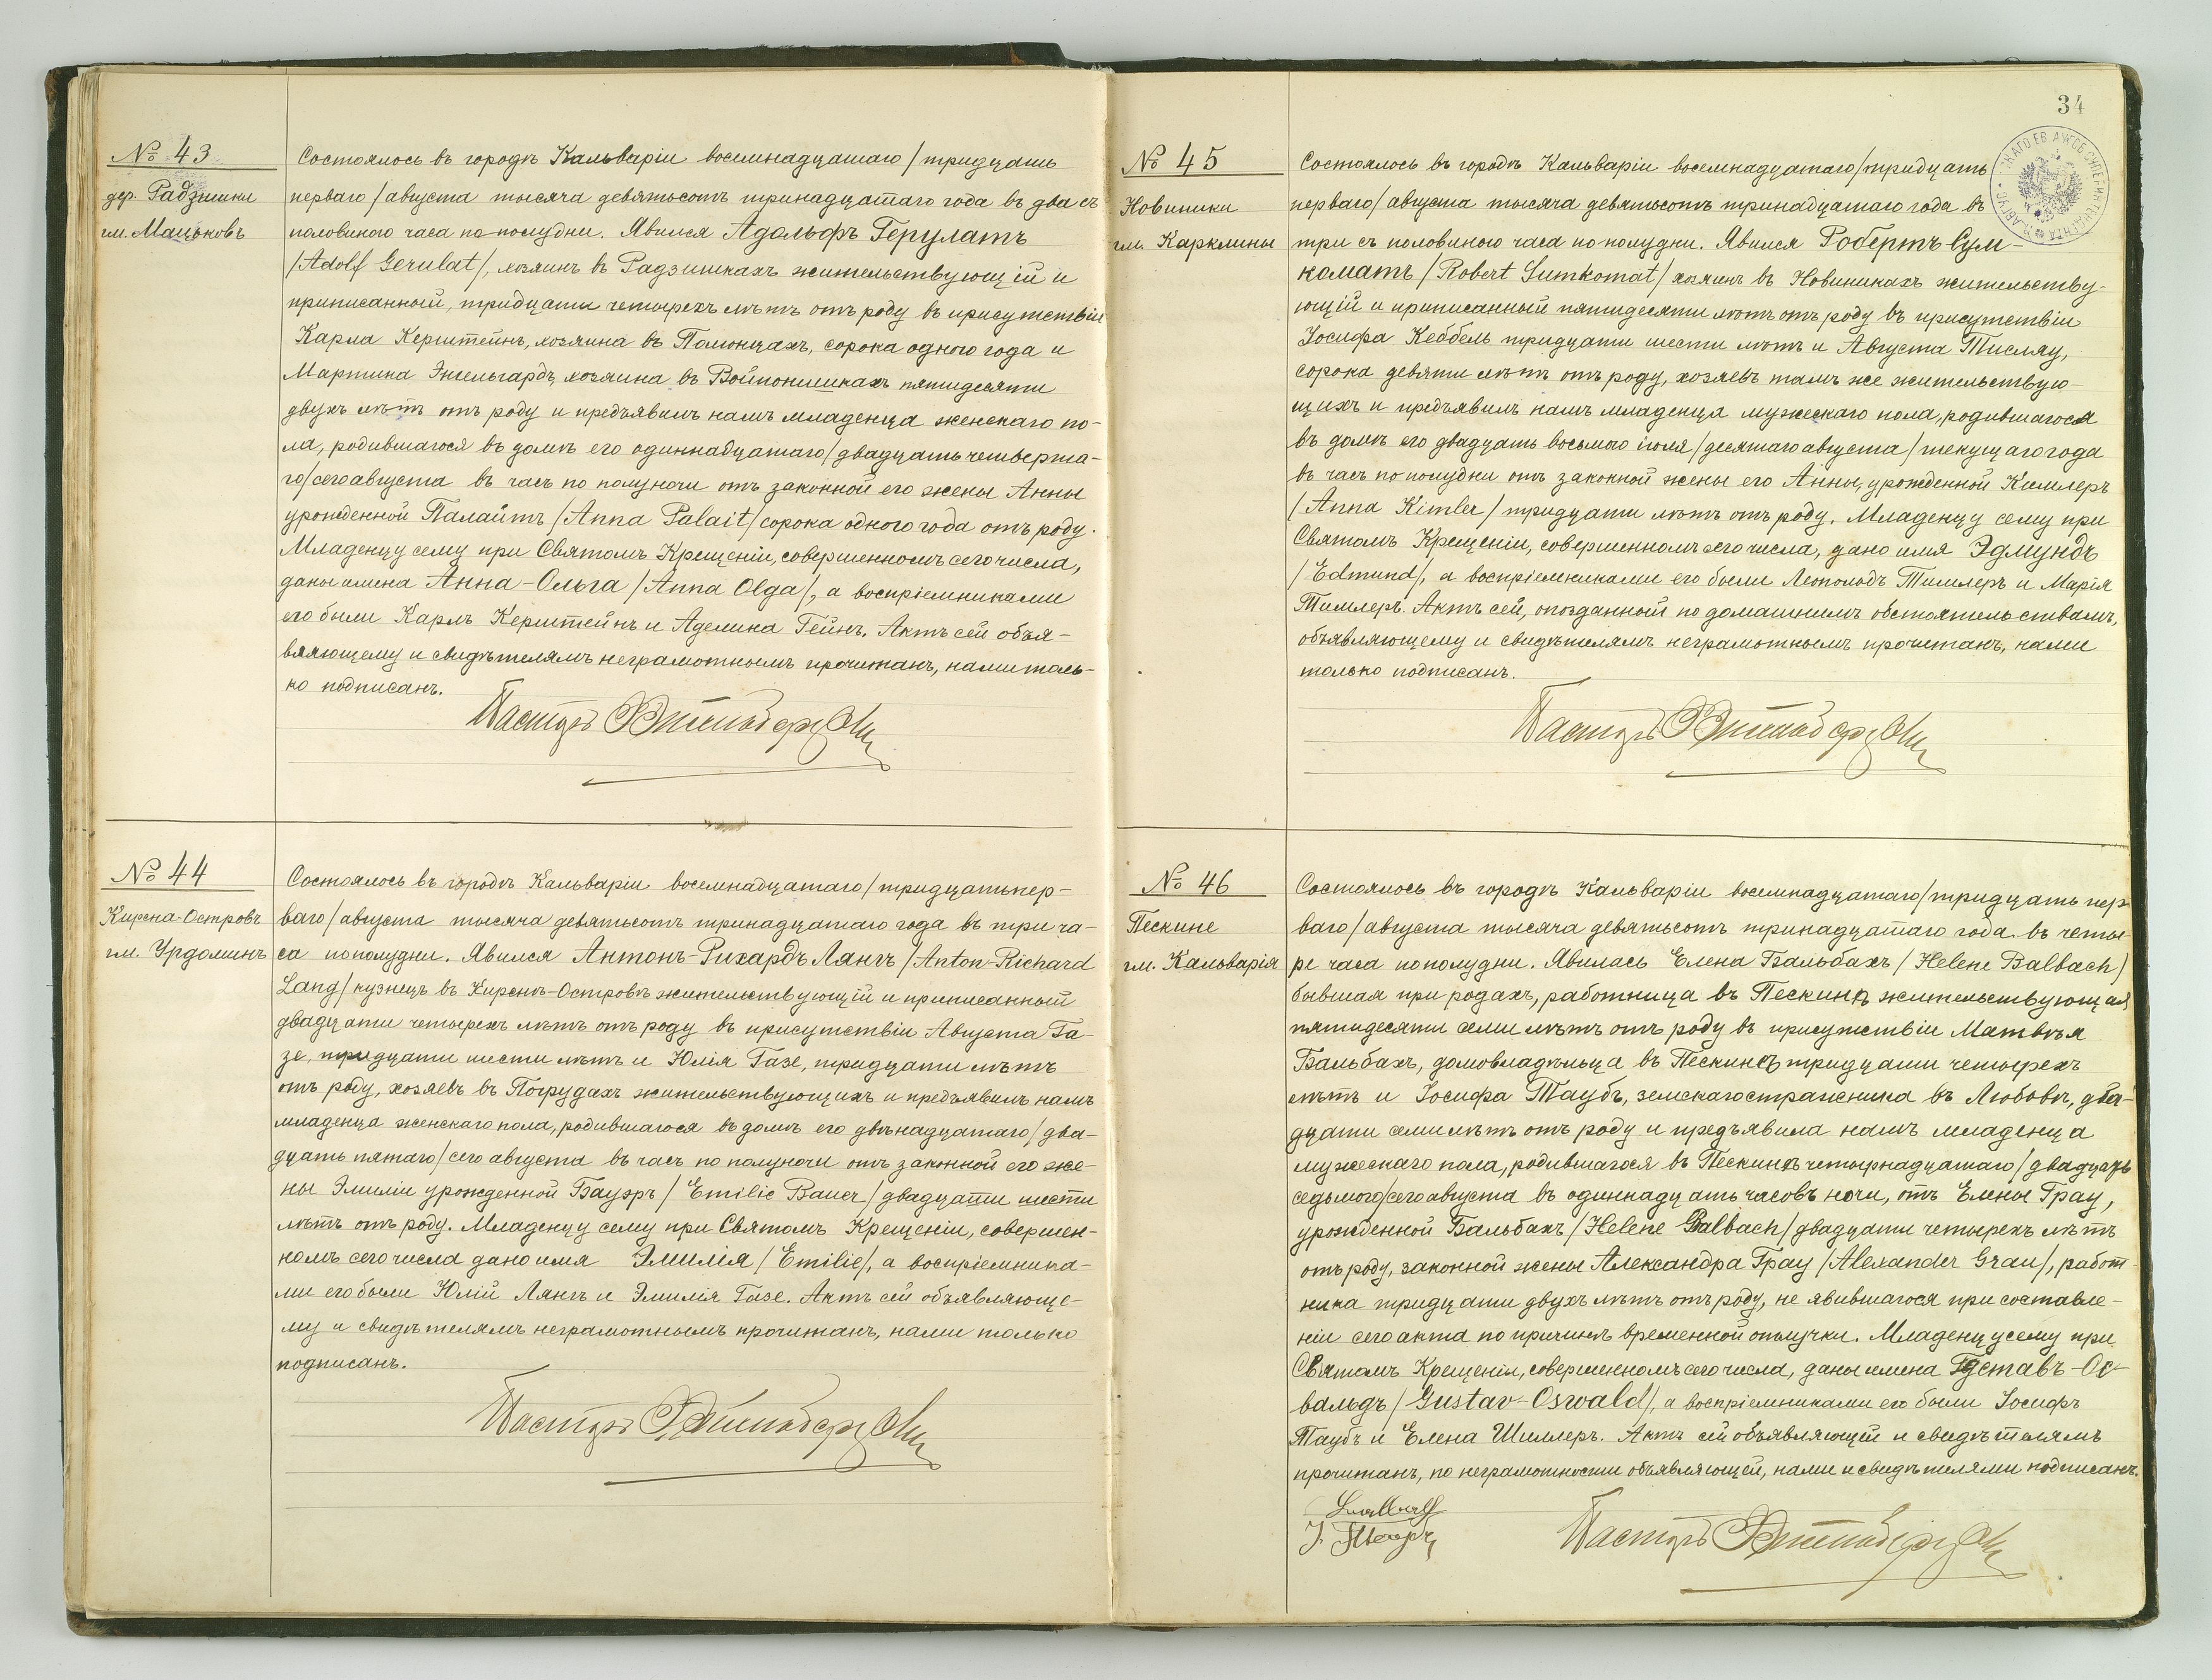 № 43
дер. Радзишки
гм. Мацьковъ
Состоялось въ городѣ Кальваріи восемнадцатаго / тридцать
перваго / августа тысяча девятьсотъ тринадцатаго года въ два съ
половиною часа по полудни. Явился Адольфъ Герулатъ
/Adolf Gerulat/, хозяинъ въ Радзишкахъ жительствующій и
приписанный, тридцати четырехъ лѣтъ отъ роду въ присутствіи
Карла Керштейнъ, хозяина въ Полонцахъ, сорока одного года и
Мартина Энгельгардъ, хозяина въ Войпонишкахъ пятидесяти
двухъ лѣтъ отъ роду и предъявилъ намъ младенца женскаго по-
ла, родившагося въ домѣ его одиннадцатаго / двадцать четверта-
го / сего августа въ часъ по полуночи отъ законной его жены Анны
урожденной Палайтъ / Anna Palait / сорока одного года отъ роду.
Младенцу сему при Святомъ Крещеніи, совершенномъ сего числа,
даны имена Анна-Ольга / Anna Olga /, а воспріемниками
его были Карлъ Керштейнъ и Аделина Гейнъ. Актъ сей объя-
вляющему и свидѣтелямъ неграмотнымъ прочитанъ, нами толь-
ко подписанъ.
Пасторъ
№ 44
Кирсна-Островъ
гм. Урдоминъ
Состоялось въ городѣ Кальваріи восемнадцатаго / тридцать пер-
ваго / августа тысяча девятьсотъ тринадцатаго года въ три ча-
са пополудни. Явился Антонъ-Рихардъ Лянгъ / Anton-Richard
Lang / кузнецъ въ Кирснѣ-Островѣ жительствующій и приписанный
двадцати четырехъ лѣтъ отъ роду въ присутствіи Августа Га-
зе, тридцати шести лѣтъ и Юлія Газе, тридцати лѣтъ
отъ роду, хозяевъ въ Погрудахъ жительствующихъ и предъявилъ намъ
младенца женскаго пола, родившагося въ домѣ его двѣнадцатаго / два-
дцать пятаго / сего августа въ часъ по полуночи отъ законной его же-
ны Эмиліи урожденной Бауэръ / Emilie Bauer / двадцати шести
лѣтъ отъ роду. Младенцу сему при Святомъ Крещеніи, совершен-
номъ сего числа дано имя Эмилія / Emilie /, а воспріемника-
ми его были Юлій Лянгъ и Эмилія Газе. Актъ сей объявляюще-
му и свидѣтелямъ неграмотнымъ прочитанъ, нами только
подписанъ.
Пасторъ
34
№ 45
Новиники
гм. Карклины
Состоялось въ городѣ Кальваріи восемнадцатаго / тридцать
перваго / августа тысяча девятьсотъ тринадцатаго года въ
три съ половиною часа по полудни. Явился Робертъ Сум-
коматъ / Robert Sumkomat / хозяинъ въ Новиникахъ жительству-
ющій и приписанный пятидесяти лѣтъ отъ роду въ присутствіи
Іосифа Кеббель тридцати шести лѣтъ и Августа Тисляу,
сорока девяти лѣтъ отъ роду, хозяевъ тамъ же жительствую-
щихъ и предъявилъ намъ младенца мужескаго пола, родившагося
въ домѣ его двадцать восьмого іюля / десятаго августа / текущаго года
въ часъ по полудни отъ законной жены его Анны, урожденной Кимлеръ
/ Anna Kimler / тридцати лѣтъ отъ роду. Младенцу сему при
Святомъ Крещеніи, совершенномъ сего числа, дано имя Эдмундъ
/ Edmund /, а воспріемниками его были Леопольдъ Тимлеръ и Марія
Тимлеръ. Актъ сей, опозданный по домашнимъ обстоятельствамъ,
объявляющему и свидѣтелямъ неграмотнымъ прочитанъ, нами
только подписанъ.
Пасторъ
№ 46
Пескине
гм. Кальварія
Состоялось въ городѣ Кальваріи восемнадцатаго / тридцать пер-
ваго / августа тысяча девятьсотъ тринадцатаго года въ четы-
ре часа пополудни. Явилась Елена Бальбахъ / Helene Balbach /
бывшая при родахъ, работница въ Пескинѣ жительствующая
пятидесяти семи лѣтъ отъ роду въ присутствіи Матвѣя
Бальбахъ, домовладѣльца въ Пескинѣ тридцати четырехъ
лѣтъ и Іосифа Таубъ, земскаго стражника въ Любовѣ, два-
дцати семи лѣтъ отъ роду и предъявила намъ младенца
мужескаго пола, родившагося въ Пескинѣ четырнадцатаго / двадцать
седьмого / сего августа въ одиннадцать часовъ ночи, отъ Елены Грау,
урожденной Бальбахъ / Helene Balbach / двадцати четырехъ лѣтъ
отъ роду, законной жены Александра Грау / Alexander Grau /, работ-
ника тридцати двухъ лѣтъ отъ роду, не явившагося при составле-
ніи сего акта по причинѣ временной отлучки. Младенцу сему при
Святомъ Крещеніи, совершенномъ сего числа, даны имена Густавъ-Ос-
вальдъ / Gustav-Oswald /, а воспріемниками его были Іосифъ
Таубъ и Елена Шиллеръ. Актъ сей объявляющей и свидѣтелямъ
прочитанъ, по неграмотности объявляющей, нами и свидѣтелями подписанъ.
Пасторъ